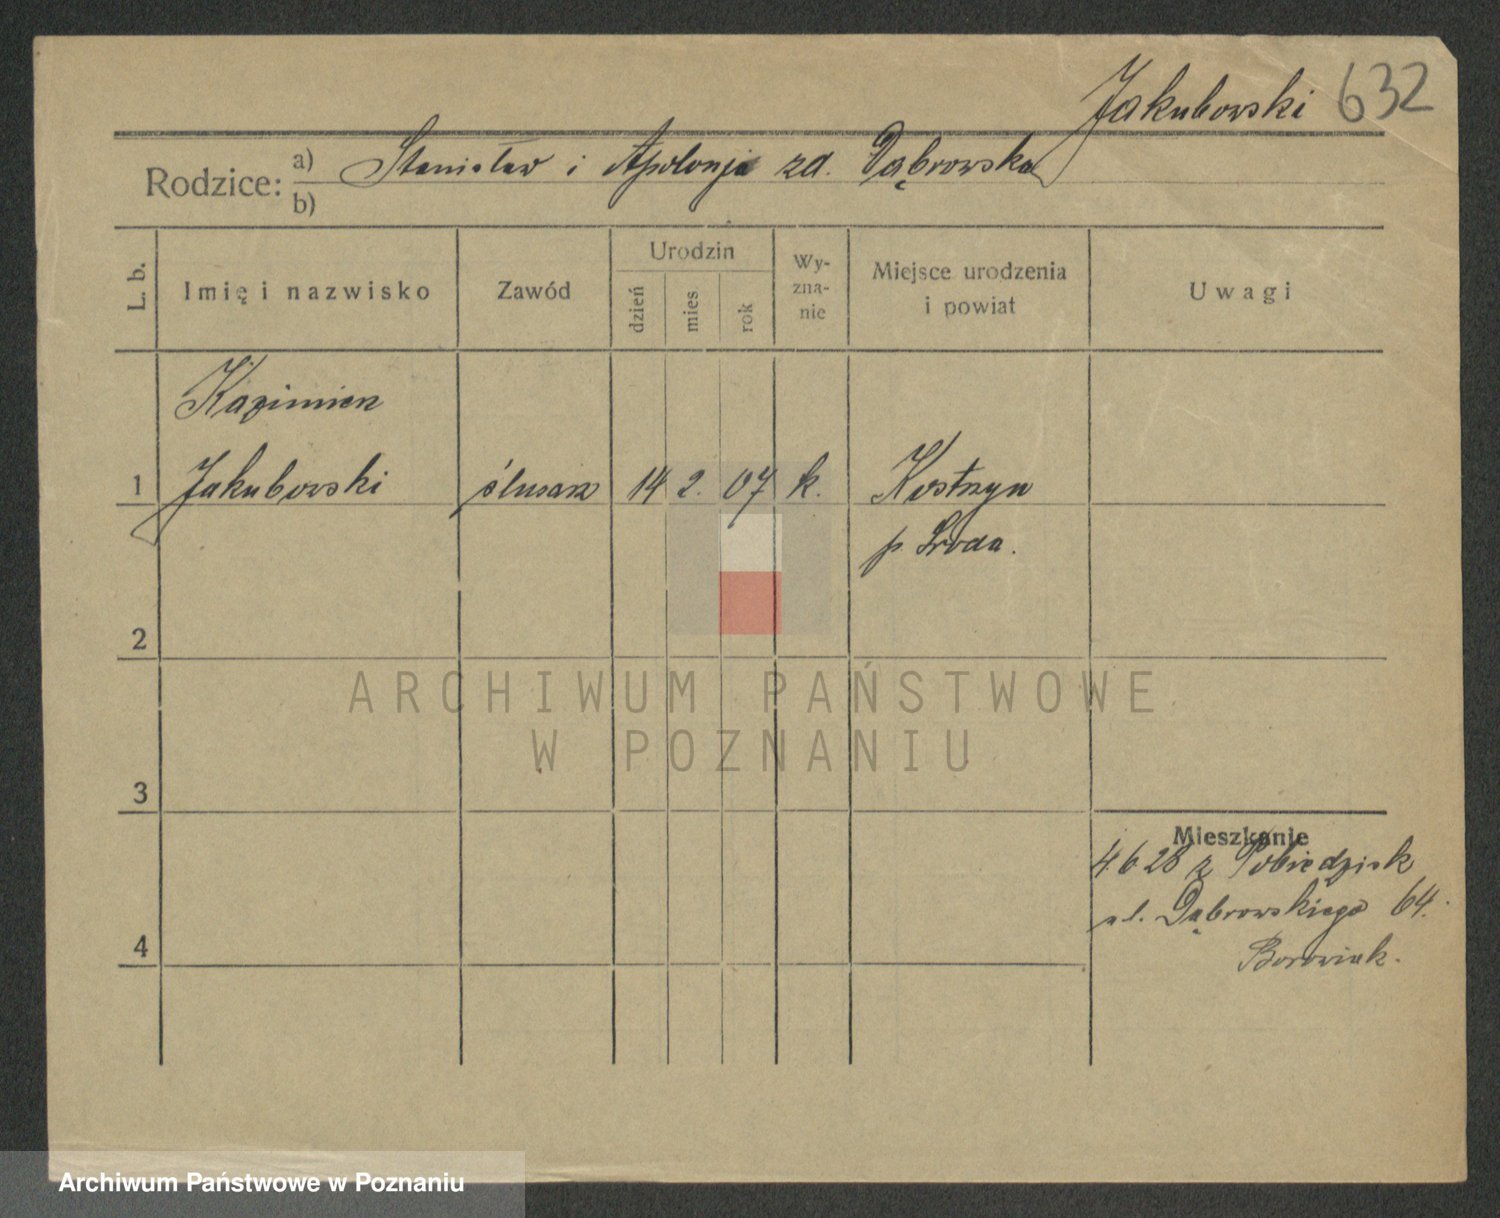 Jakubowski 632
Rodzice: a) Stanisław i Apolonja zd. Dąbrowska
b)
L. b.
Imię i nazwisko
Zawód
Urodzin
dzień
mies
rok
Wy-
zna-
nie
Miejsce urodzenia
i powiat
Uwagi
Kazimierz
1 Jakubowski ślusarz 14 2. 07 k. Kostrzyn
p. Środa.
2
ARCHIWUM PAŃSTWOWE
W POZNANIU
3
Mieszkanie
4.6 28 z Pobiedzisk
ul. Dąbrowskiego 64.
4
Borowiak.
Archiwum Państwowe w Poznaniu